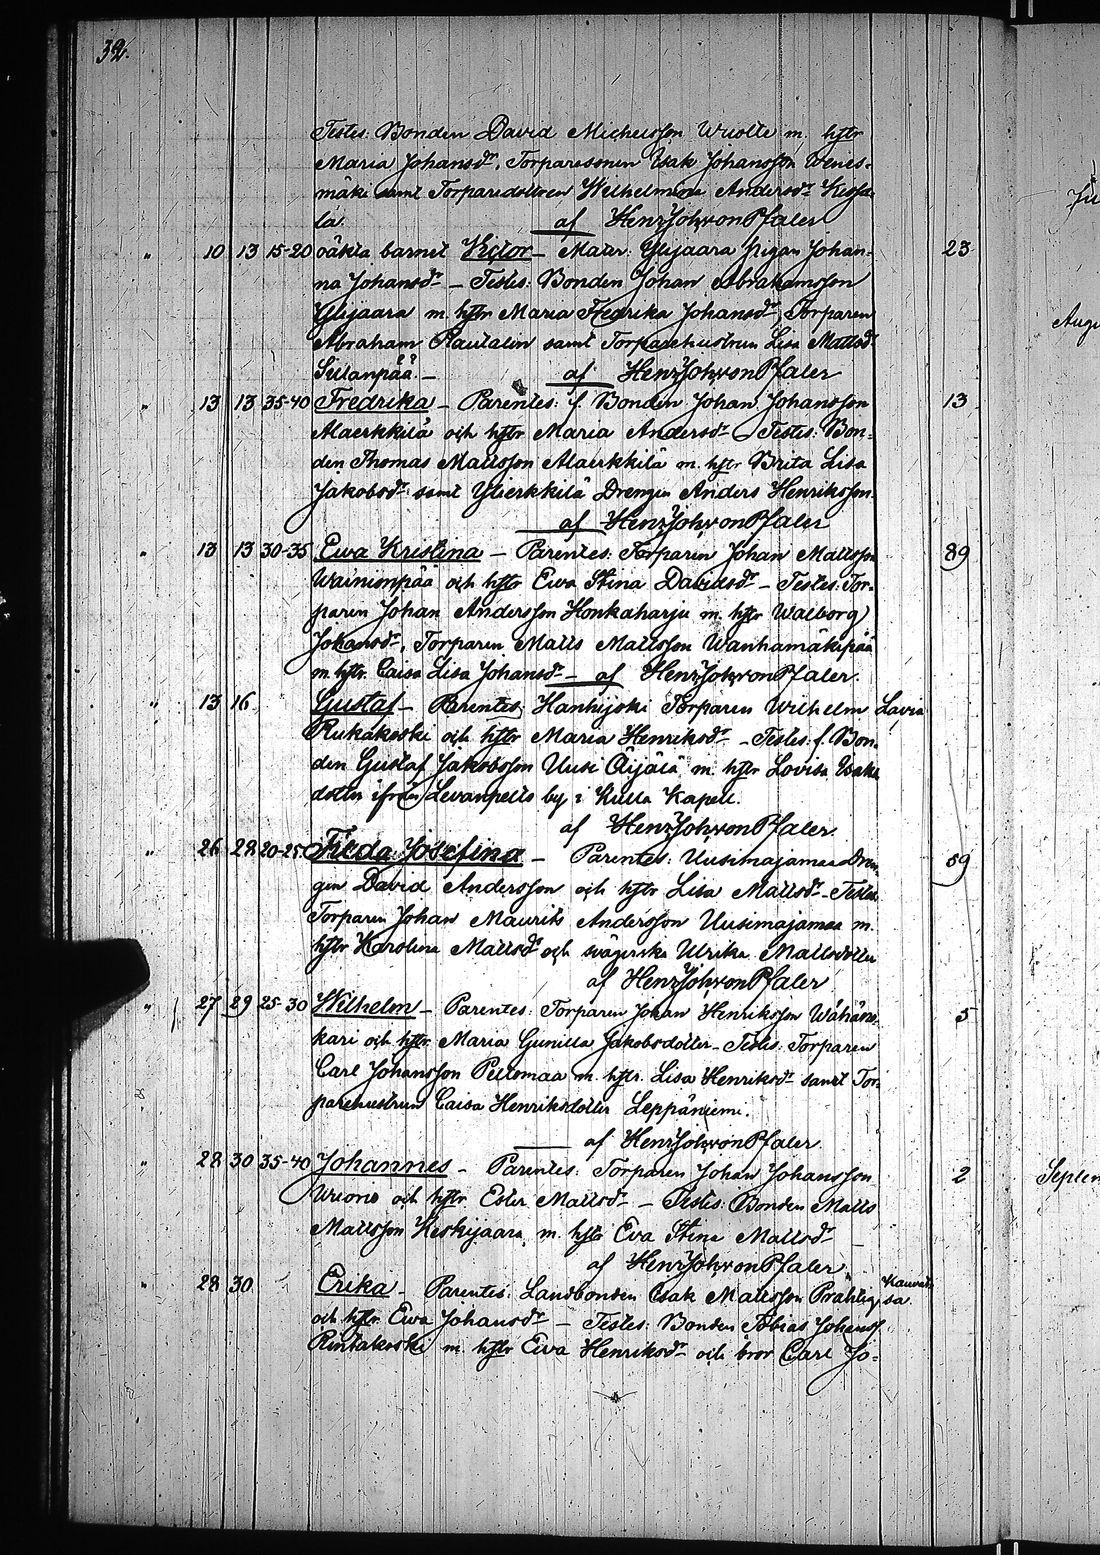 32.
Testes: Bonden David Michelsson Wuolle m. hstr
Maria Johansdr, Torparesonen Isak Johansson Wenes-
mäki samt Torparedottren Wilhelmina Andersdr
la. af Henr Joh von Pfaler
" 10 13 15-20 oäkta barnet Victor – Mater: Ylijaara pigan Johan- 23
na Johansdr – Testes: Bonden Johan Abrahamsson
Ylijaara m. hstr Maria Fredrika Johansdr, Torparen
Abraham Rautalin samt Torparehustrun Lisa Mattsdr
Sillanpää. – af Henr Joh von Pfaler
" 13 13 35-40 Fredrika – Parentes: f. Bonden Johan Johansson 13
Alaerkkilä och hstr Maria Andersdr – Testes: Bon-
den Thomas Mattsson Alaerkkilä m. hstr Brita Lisa
Jakobsdr samt Ylierkkilä Drengen Anders Henriksson.
af Henr Joh von Pfaler
" 13 13 30-35 Ewa Kristina – Parentes: Torparen Johan Mattsson 89
Wainionpää och hstr Ewa Stina Davidsdr – Testes: Tor-
paren Johan Andersson Honkaharju m. hstr Walborg
Johansdr, Torparen Matts Mattsson Wanhamäkipää
m. hstr Caisa Lisa Johansdr – af Henr Joh von Pfaler.
" 13 16 Gustaf – Parentes: Hanhijoki Torparen Wilhelm Lavia
Rukakoski och hstr Maria Henriksdr – Testes: f. Bon-
den Gustaf Jakobsson Uusi Äijälä m. hstr Lovisa Isaks
dotter ifrån Levanpelts by i Kulla Kapell.
af Henr Joh von Pfaler.
" 26 28 20-25 Josefina – Parentes: Uusimajamaa Dren- 59
gen David Andersson och hstr Lisa Mattsdr – Testes:
Torparen Johan Maurits Andersson Uusimajamaa m.
hstr Karolina Mattsdr och svägerska Ulrika Mattsdotter
af Henr Joh von Pfaler
" 27 29 25-30 Wilhelm – Parentes: Torparen Johan Henriksson Wähän- 5
kari och hstr Maria Gunilla Jakobsdotter – Testes: Torparen
Carl Johansson Peltomaa m. hstr. Lisa Henriksdr samt Tor-
parehustrun Caisa Henriksdotter Leppäniemi.
af Henr Joh von Pfaler
" 28 30 35-40 Johannes – Parentes: Torparen Johan Johansson 2
Wriono och hstr Ester Mattsdr – Testes: Bonden Matts
Mattsson Keskijaara, m. hstr Eva Stina Mattsdr –
af Henr Joh von Pfaler
" 28 30 Erika – Parentes: Landbonden Isak Mattsson Prahtig, Kauvat-
sa.
och hstr Ewa Johansdr – Testes: Bonden Tobias Johanss.
Rintakoski m. hstr Ewa Henriksdr och bror Carl Jo-
Augu
Septem